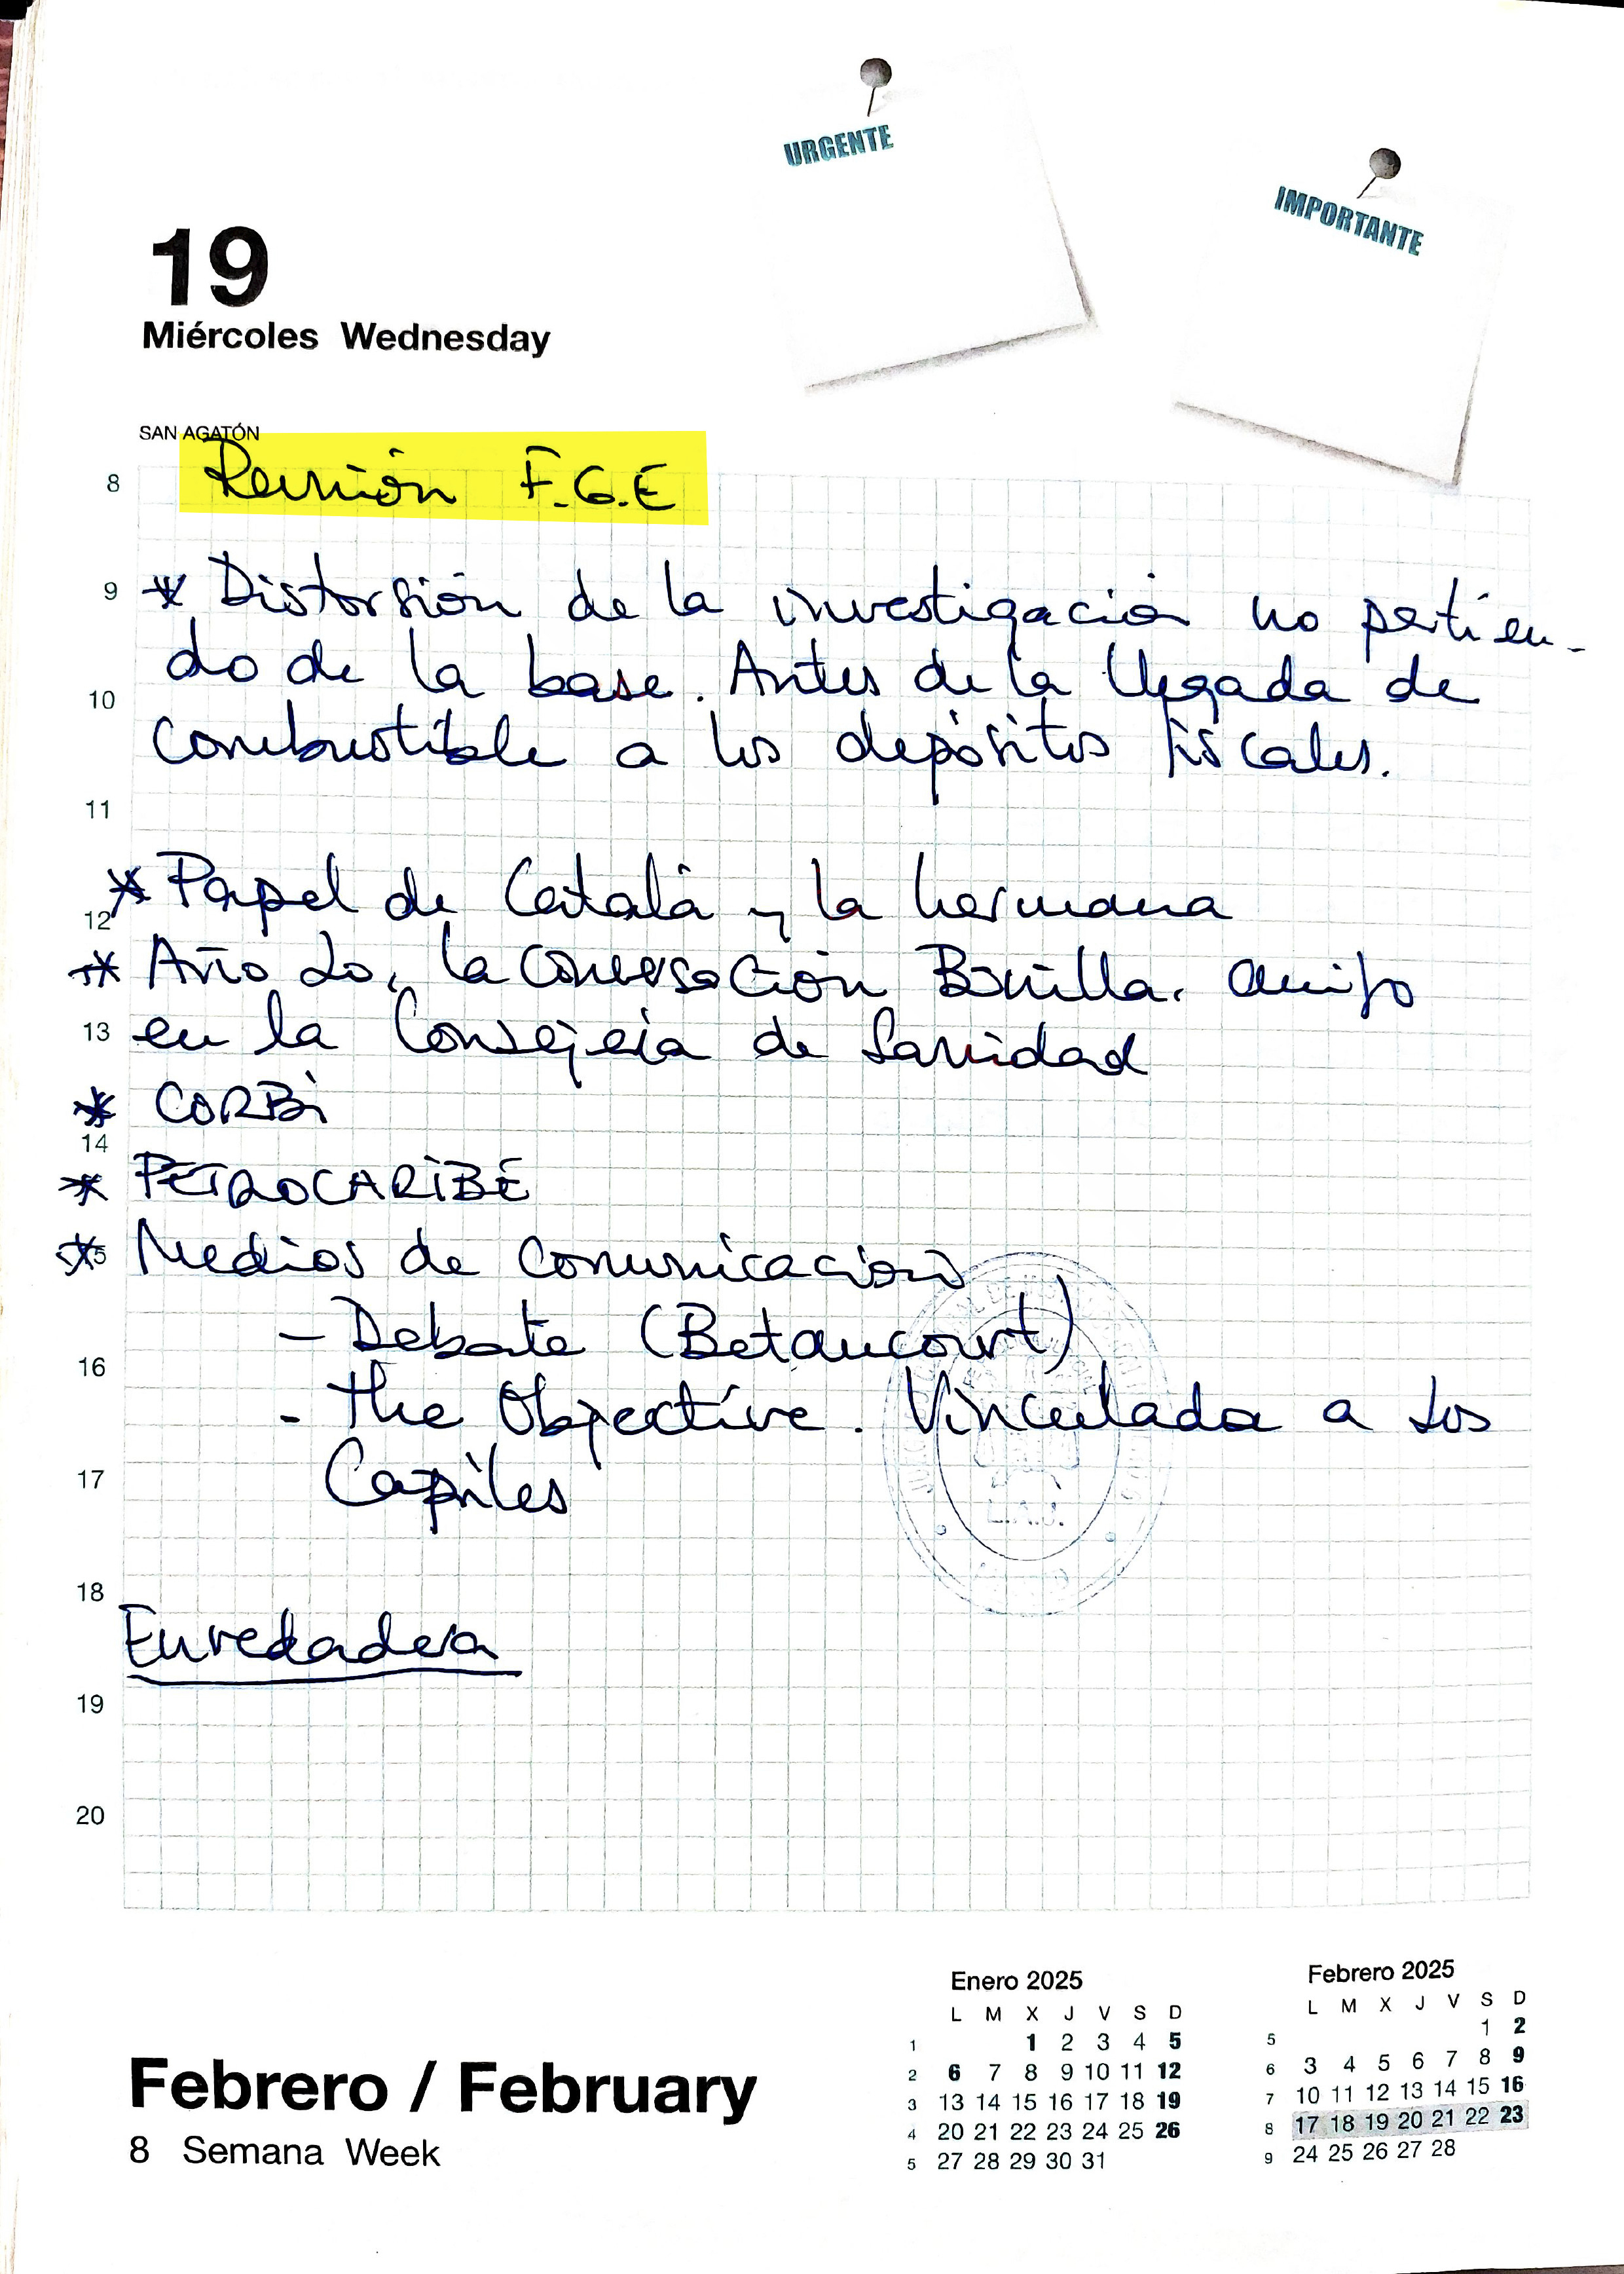 URGENTE
IMPORTANTE
19
Miércoles Wednesday
SAN AGATÓN
8 Reunión F.G.E
9 * Distorsión de la investigación no partien-
do de la base. Antes de la llegada de
10
combustible a los depósitos fiscales.
11
* Papel de Catalá y la hermana
12
* Año 20, la conversación Bonilla. Amigo
13 en la Consejería de Sanidad
* CORBÍ
14
* PETROCARIBE
* 15 Medios de comunicación
- Debate (Betancourt)
16
- The Objective. Vinculada a los
17 Capriles
18
Enredadera
19
20
Febrero / February
8 Semana Week
Enero 2025
L M X J V S D
1 1 2 3 4 5
2 6 7 8 9 10 11 12
3 13 14 15 16 17 18 19
4 20 21 22 23 24 25 26
5 27 28 29 30 31
Febrero 2025
L M X J V S D
5 1 2
6 3 4 5 6 7 8 9
7 10 11 12 13 14 15 16
8 17 18 19 20 21 22 23
9 24 25 26 27 28